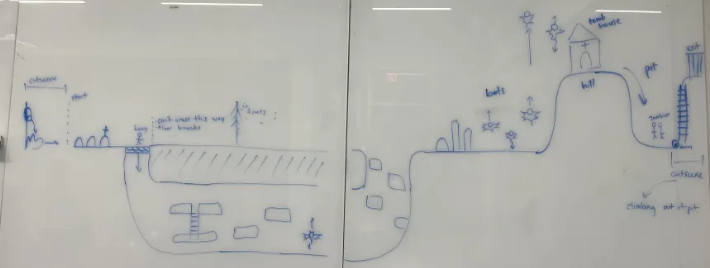 cutscene
start
can't cross this way
floor breaks
bats
tomb
house
hill
pit
zombies
exit
cutscene
climbing out of pit